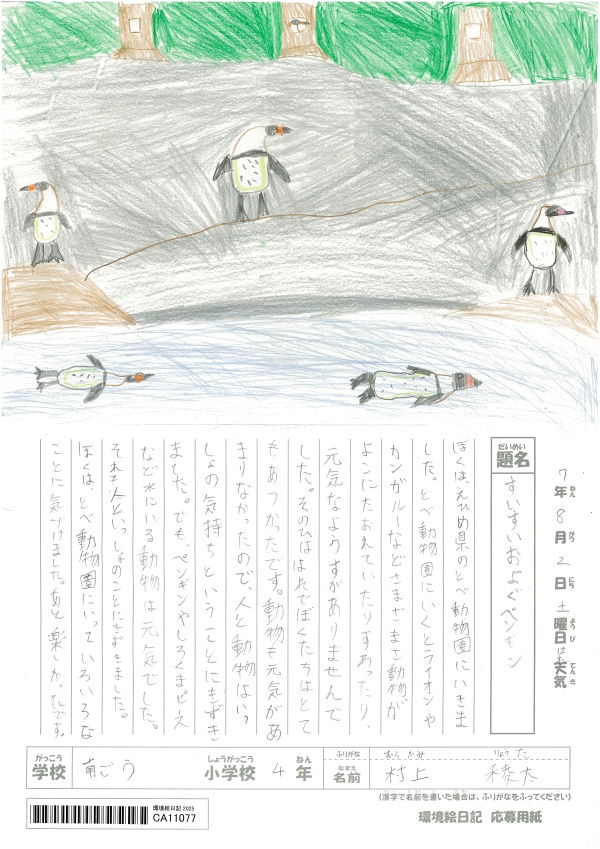 7年8月2日土曜日 はれ天気
ねん がつ にち ようび てんき
だいめい
題名
すいすいおよぐペンギン
ぼくは、えひめ県のとべ動物園にいきま
した。とべ動物園にいくとライオンや
カンガルーなどさまざまな動物が
よこにたおれていたりすわったり、
元気なようすがありませんで
した。そのひははれでぼくたちはとて
もあつかったです。動物も元気があ
まりなかったので、人と動物はいっ
しょの気持ちということにきずき
ました。でも、ペンギンやしろくまピース
など水にいる動物は元気でした。
それも人といっしょのことにきずきました。
ぼくは、とべ動物園にいっていろいろな
ことに気づけました。あと楽しかったです。
がっこう しょうがっこう ねん ふりがな むらかみ りょうた
学校 小学校 4年 なまえ 名前 村上 稜太
(漢字で名前を書いた場合は、ふりがなをふってください)
環境絵日記 2025
CA11077
環境絵日記 応募用紙